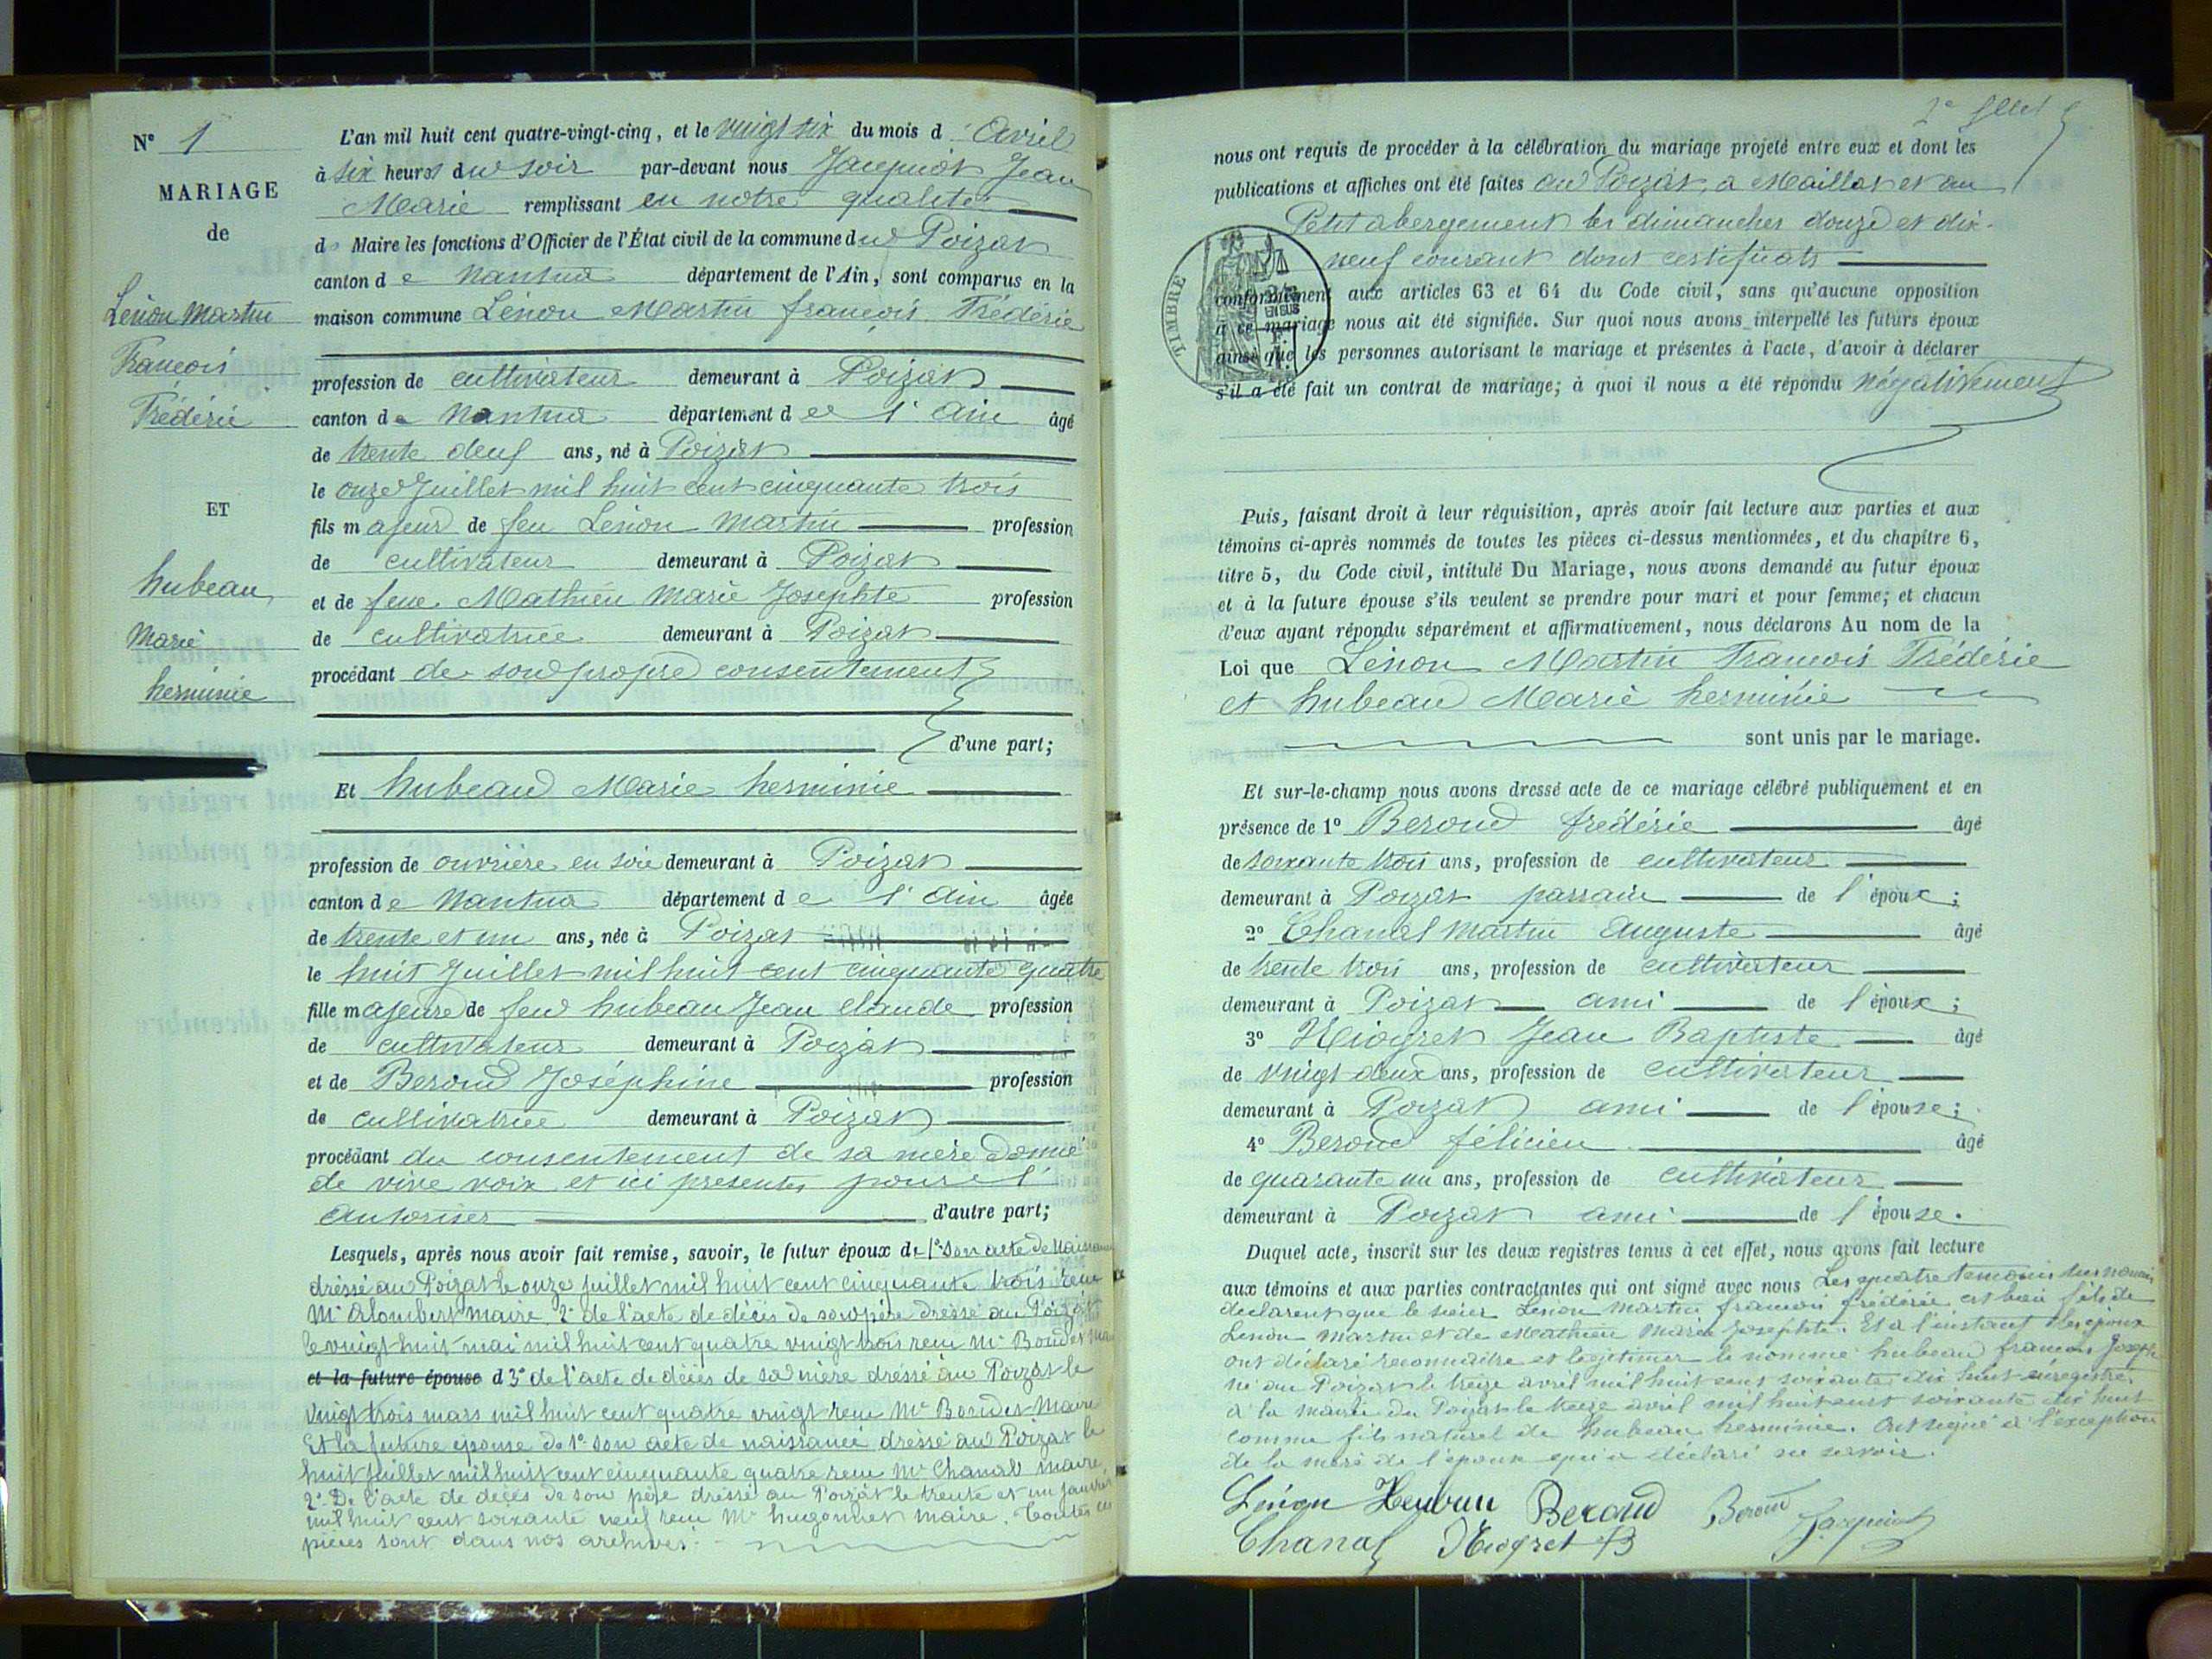 N° 1
MARIAGE
de
Lénon Martin
François
Frédéric
ET
hubeau
Marie
herminie
L'an mil huit cent quatre-vingt-cinq, et le vingt six du mois d'Avril
à six heures du soir par-devant nous Jacquiot Jean
Marie remplissant en notre qualité
de Maire les fonctions d'Officier de l'État civil de la commune du Poizat
canton de Nantua département de l'Ain, sont comparus en la
maison commune Lénon Martin françois Frédéric
profession de cultivateur demeurant à Poizat
canton de Nantua département de l'Ain âgé
de trente deux ans, né à Poizat
le onze Juillet mil huit cent cinquante trois
fils majeur de feu Lénon Martin profession
de cultivateur demeurant à Poizat
et de feue Mathieu Marie Josephte profession
de cultivatrice demeurant à Poizat
procédant de son propre consentement
d'une part;
Et hubeau Marie herminie
profession de ouvrière en soie demeurant à Poizat
canton de Nantua département de l'Ain âgée
de trente et un ans, née à Poizat
le huit Juillet mil huit cent cinquante quatre
fille majeure de feu hubeau Jean claude profession
de cultivateur demeurant à Poizat
et de Beroud Joséphine profession
de cultivatrice demeurant à Poizat
procédant du consentement de sa mère donné
de vive voix et ici présente pour l'
autoriser d'autre part;
Lesquels, après nous avoir fait remise, savoir, le futur époux de 1° son acte de Naissance
dréssé au Poizat le onze juillet mil huit cent cinquante trois reçu
Mr Alombert maire, 2° de l'acte de décès de son père dressé au Poizat
le vingt huit mai mil huit cent quatre vingt trois reçu Mr Boudet
et la future épouse d 3° de l'acte de décès de sa mère dréssé au Poizat le
vingt trois mars mil huit cent quatre vingt reçu Mr Boudet Maire
Et la future épouse de 1° son acte de naissance dressé au Poizat le
huit juillet mil huit cent cinquante quatre reçu Mr Chanal maire
2° De l'acte de décès de son père dressé au Poizat le trente et un janvier
mil huit cent soixante neuf reçu Mr hugonnet maire. Toutes ces
pièces sont dans nos archives.
nous ont requis de procéder à la célébration du mariage projeté entre eux et dont les
publications et affiches ont été faites au Poizat, a Maillat et au
Petit abergement les dimanches douze et dix-
neuf courant dont certificats
TIMBRE
conformément aux articles 63 et 64 du Code civil, sans qu'aucune opposition
à ce mariage nous ait été signifiée. Sur quoi nous avons interpellé les futurs époux
ainsi que les personnes autorisant le mariage et présentes à l'acte, d'avoir à déclarer
s'il a été fait un contrat de mariage; à quoi il nous a été répondu négativement
Puis, faisant droit à leur réquisition, après avoir fait lecture aux parties et aux
témoins ci-après nommés de toutes les pièces ci-dessus mentionnées, et du chapitre 6,
titre 5, du Code civil, intitulé Du Mariage, nous avons demandé au futur époux
et à la future épouse s'ils veulent se prendre pour mari et pour femme; et chacun
d'eux ayant répondu séparément et affirmativement, nous déclarons Au nom de la
Loi que Lénon Martin François Frédéric
et hubeau Marie herminie
sont unis par le mariage.
Et sur-le-champ nous avons dressé acte de ce mariage célébré publiquement et en
présence de 1° Beroud frédéric âgé
de soixante trois ans, profession de cultivateur
demeurant à Poizat parrain de l'époux;
2° Chanal Martin Auguste âgé
de trente trois ans, profession de cultivateur
demeurant à Poizat ami de l'époux;
3° Niogret Jean Baptiste âgé
de vingt deux ans, profession de cultivateur
demeurant à Poizat ami de l'épouse;
4° Beroud félicien âgé
de quarante un ans, profession de cultivateur
demeurant à Poizat ami de l'épouse.
Duquel acte, inscrit sur les deux registres tenus à cet effet, nous avons fait lecture
aux témoins et aux parties contractantes qui ont signé avec nous Les quatre temoins
declarent que le sieur Lenon Martin francois frédéric est bien fils de
Lenon Martin et de Mathieu Marie Josephte. Et a l'instant les époux
ont déclaré reconnaître et légitimer le nommé hubeau françois Joseph
né au Poizat le treize avril mil huit cent soixante dix huit enregistré
a la mairie du Poizat le treize avril mil huit cent soixante dix huit
comme fils naturel de hubeau herminie. Ont signé a l'exception
de la mère de l'épouse qui a déclaré ne savoir.
Lénon Beroud Beroud Jacquiot
Chanal Niogret JB